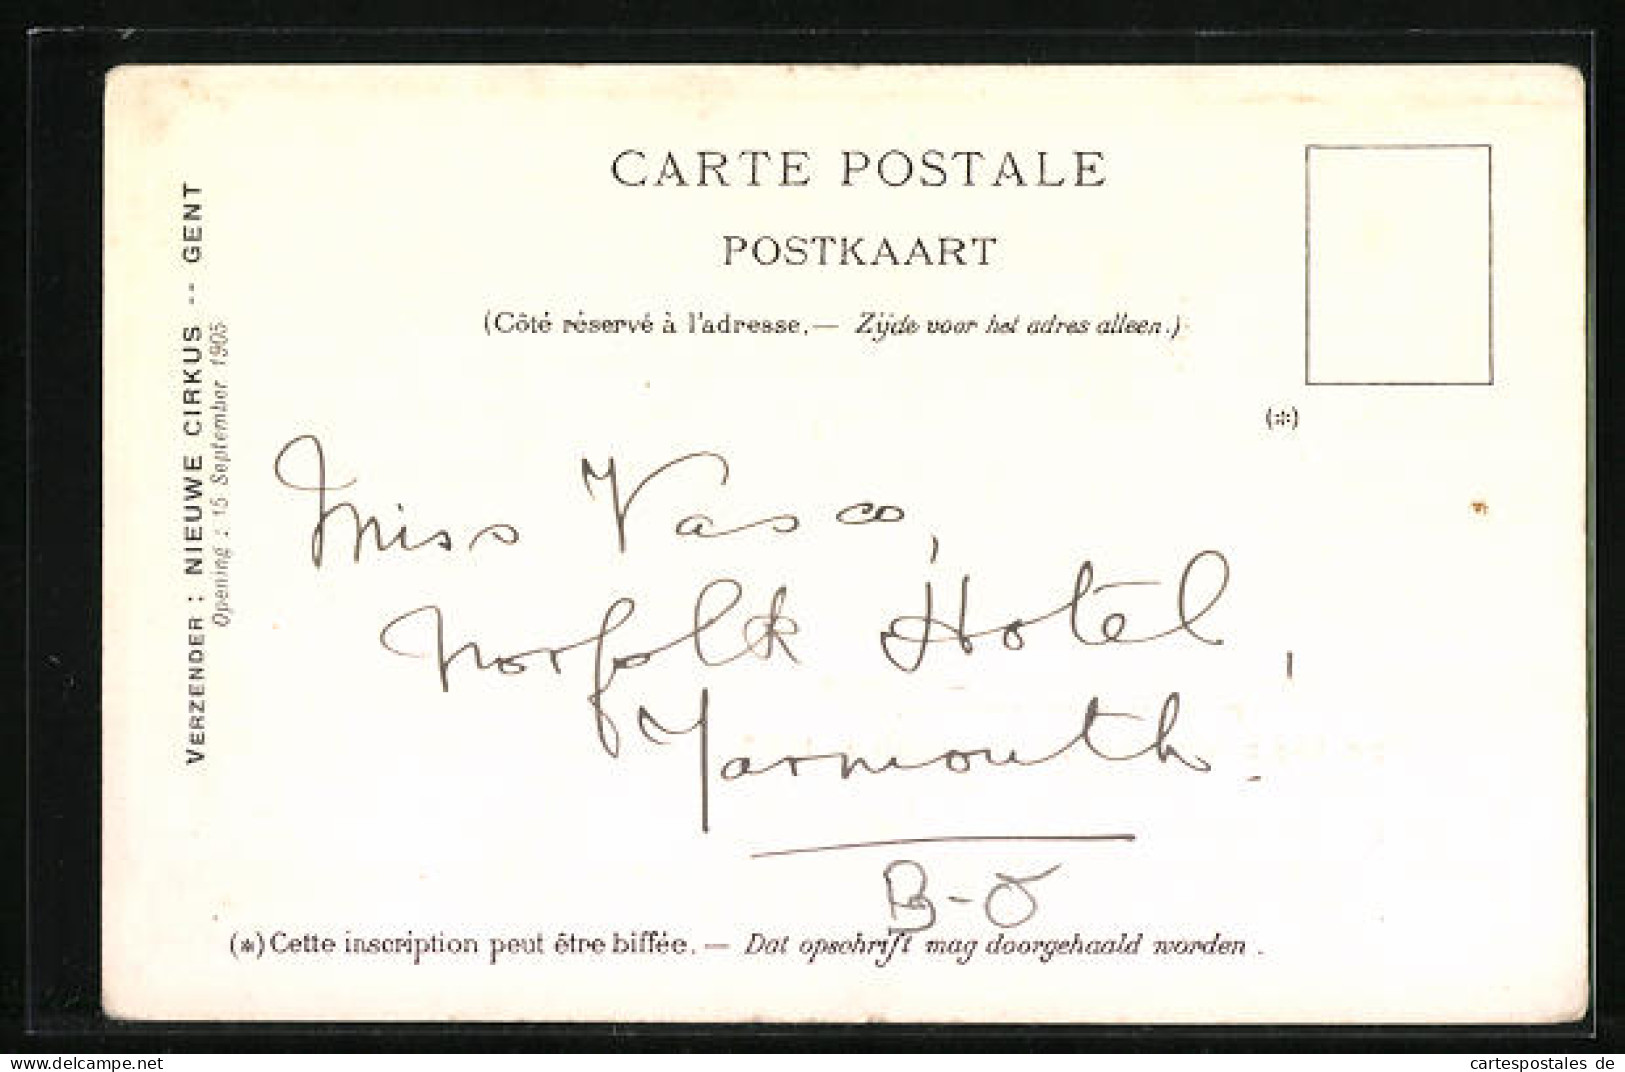 CARTE POSTALE
POSTKAART
(Côté réservé à l'adresse.— Zijde voor het adres alleen.)
(*)
VERZENDER : NIEUWE CIRKUS -- GENT
Opening : 15 September 1905
Miss Vasco,
Norfolk Hotel,
Yarmouth.
B-O
(*) Cette inscription peut être biffée. — Dat opschrift mag doorgehaald worden .
www.cartespostales.com
cartespostales de